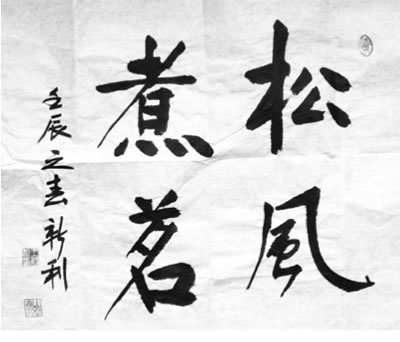 松風
煮茗
壬辰之春新利